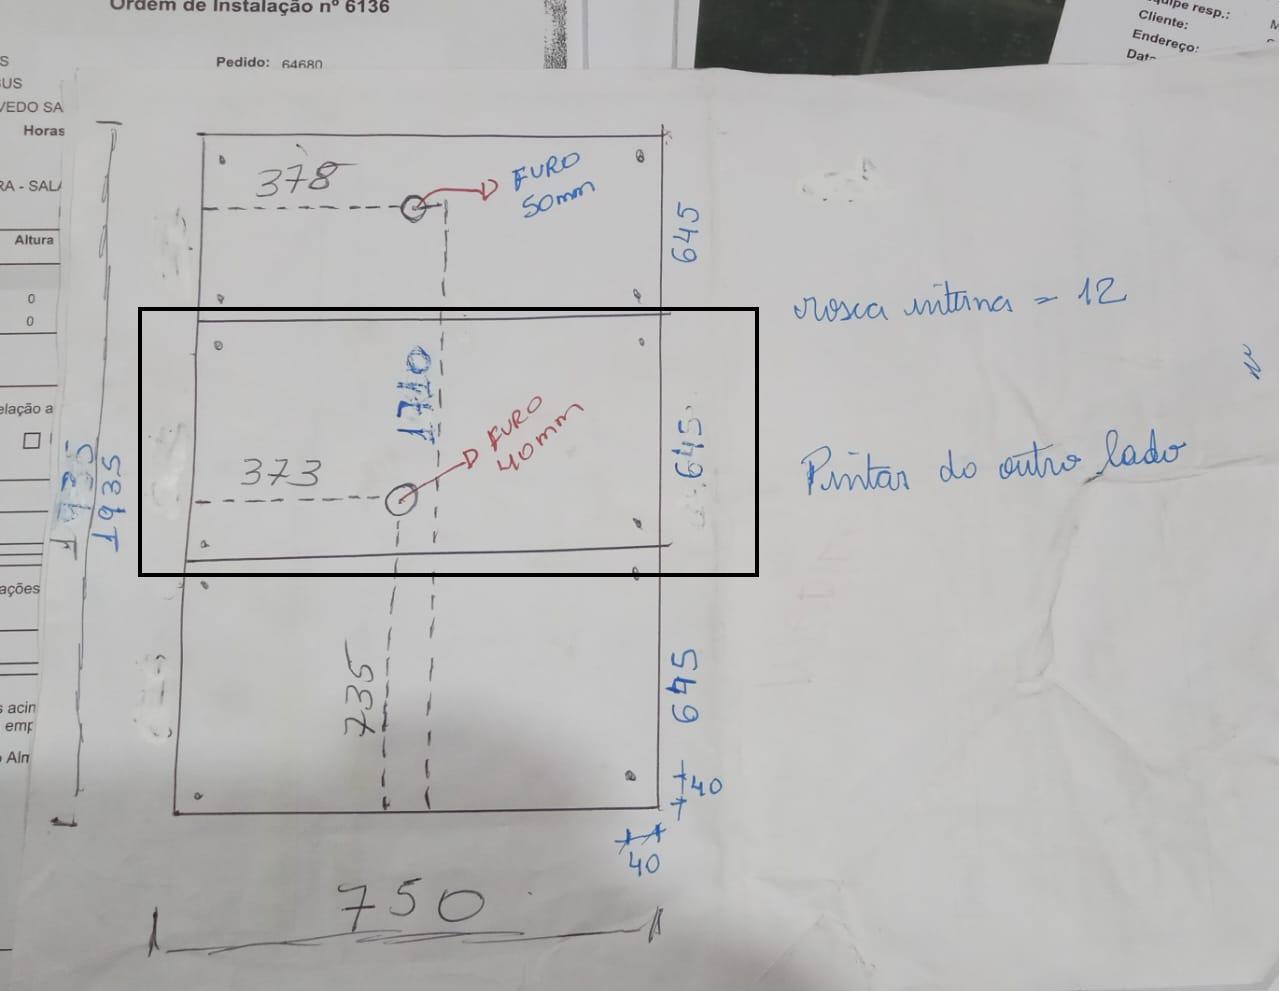 Ordem de Instalação nº 6136
Pedido: 64680
S
SUS
VEDO SA
Horas
RA - SALA
Altura
0
0
elação a
ações
s acin
emp
o Alm
quipe resp.:
Cliente:
Endereço:
Data
378
FURO
50mm
645
1710
FURO
40mm
373
645
1935
1935
735
645
40
40
750
rosca interna = 12
Pintar do outro lado